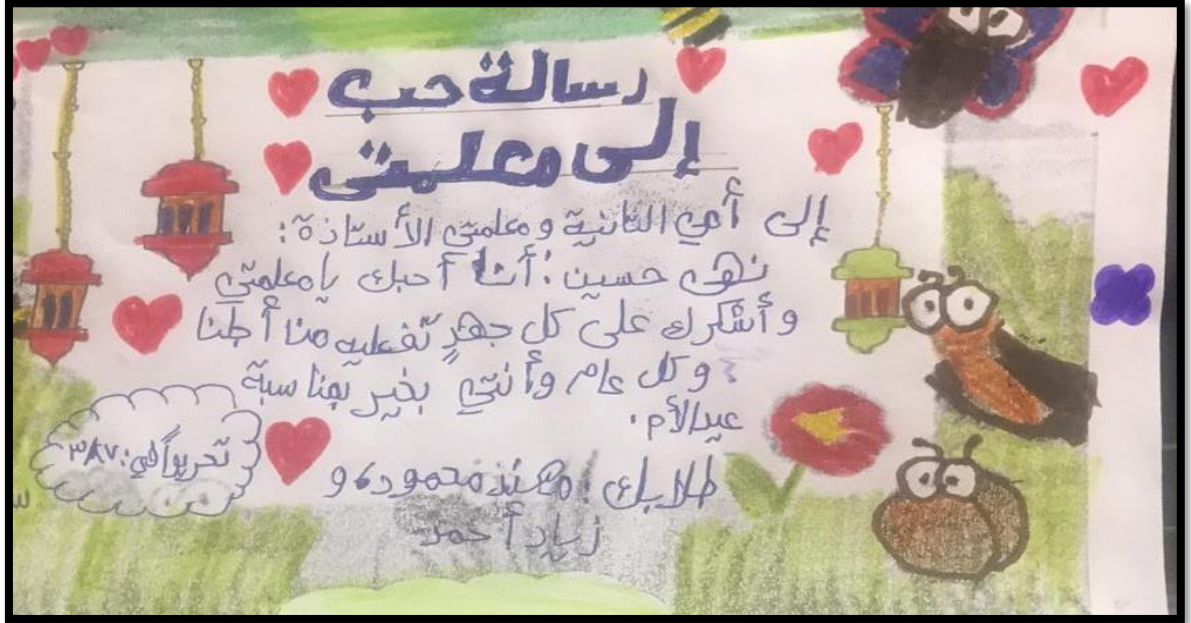 رسالة حب
إلى معلمتى
إلى أمي الثانية و معلمتي الأستاذة:
نهى حسين: أنا أحبك يا معلمتي
و أشكرك على كل جهدٍ تفعليه من أجلنا
و كل عام وأنتي بخير بمناسبة
عيد الأم.
طلابك: مهند محمود، و
زياد أحمد
تحريراً في: